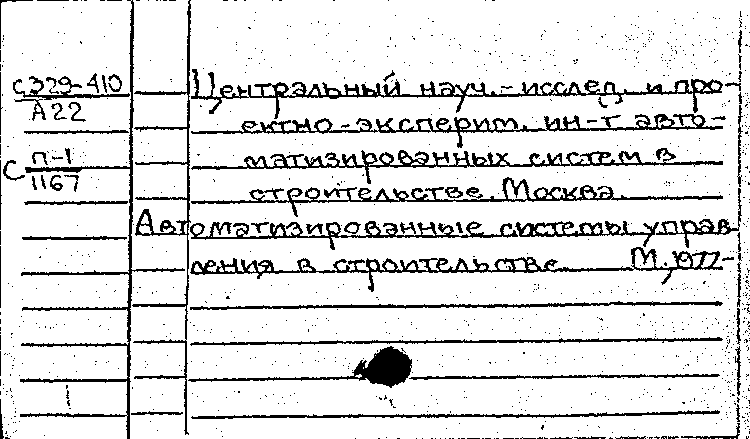 С329-410
А22
С П-1
1167
Центральный науч.-исслед. и про-
ектно-эксперим. ин-т авто-
матизированных систем в
строительстве. Москва.
Автоматизированные системы управ-
ления в строительстве. М., 1977-